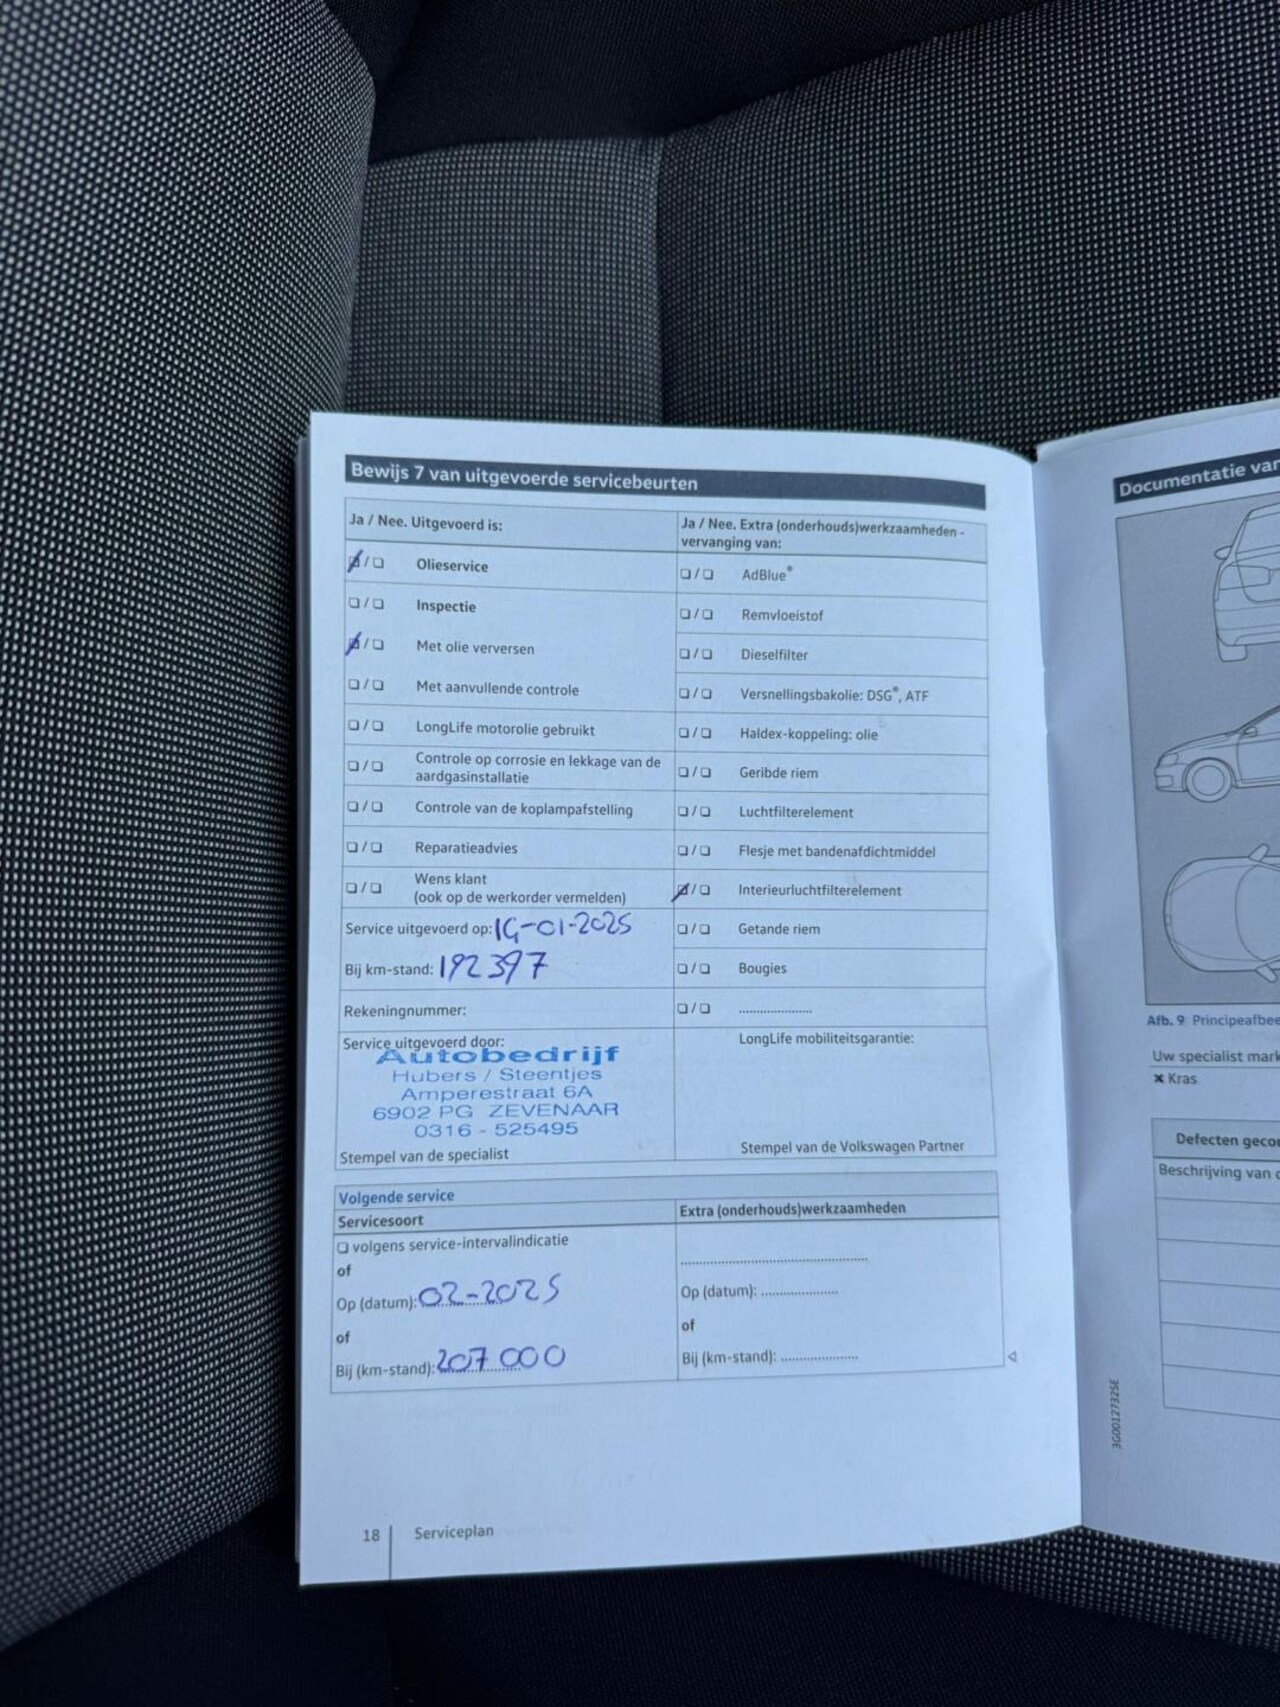 Bewijs 7 van uitgevoerde servicebeurten
Ja / Nee. Uitgevoerd is:
❏/❏ Olieservice
❏/❏ Inspectie
❏/❏ Met olie verversen
❏/❏ Met aanvullende controle
❏/❏ LongLife motorolie gebruikt
❏/❏ Controle op corrosie en lekkage van de
aardgasinstallatie
❏/❏ Controle van de koplampafstelling
❏/❏ Reparatieadvies
❏/❏ Wens klant
(ook op de werkorder vermelden)
Service uitgevoerd op: -01-2025
Bij km-stand: 192397
Rekeningnummer:
Service uitgevoerd door:
Autobedrijf
Hubers / Steentjes
Amperestraat 6A
6902 PG ZEVENAAR
0316 - 525495
Stempel van de specialist
Ja / Nee. Extra (onderhouds)werkzaamheden -
vervanging van:
❏/❏ AdBlue®
❏/❏ Remvloeistof
❏/❏ Dieselfilter
❏/❏ Versnellingsbakolie: DSG®, ATF
❏/❏ Haldex-koppeling: olie
❏/❏ Geribde riem
❏/❏ Luchtfilterelement
❏/❏ Flesje met bandenafdichtmiddel
❏/❏ Interieurluchtfilterelement
❏/❏ Getande riem
❏/❏ Bougies
❏/❏ .....................
LongLife mobiliteitsgarantie:
Stempel van de Volkswagen Partner
Volgende service
Servicesoort
❏ volgens service-intervalindicatie
of
Op (datum): 02-2025
of
Bij (km-stand): 207 000
Extra (onderhouds)werkzaamheden
.....................................................
Op (datum): .....................
of
Bij (km-stand): .....................
18 Serviceplan
Documentatie van
Afb. 9 Principeafbee
Uw specialist mark
✖ Kras
Defecten gecon
Beschrijving van d
3G0012732SE